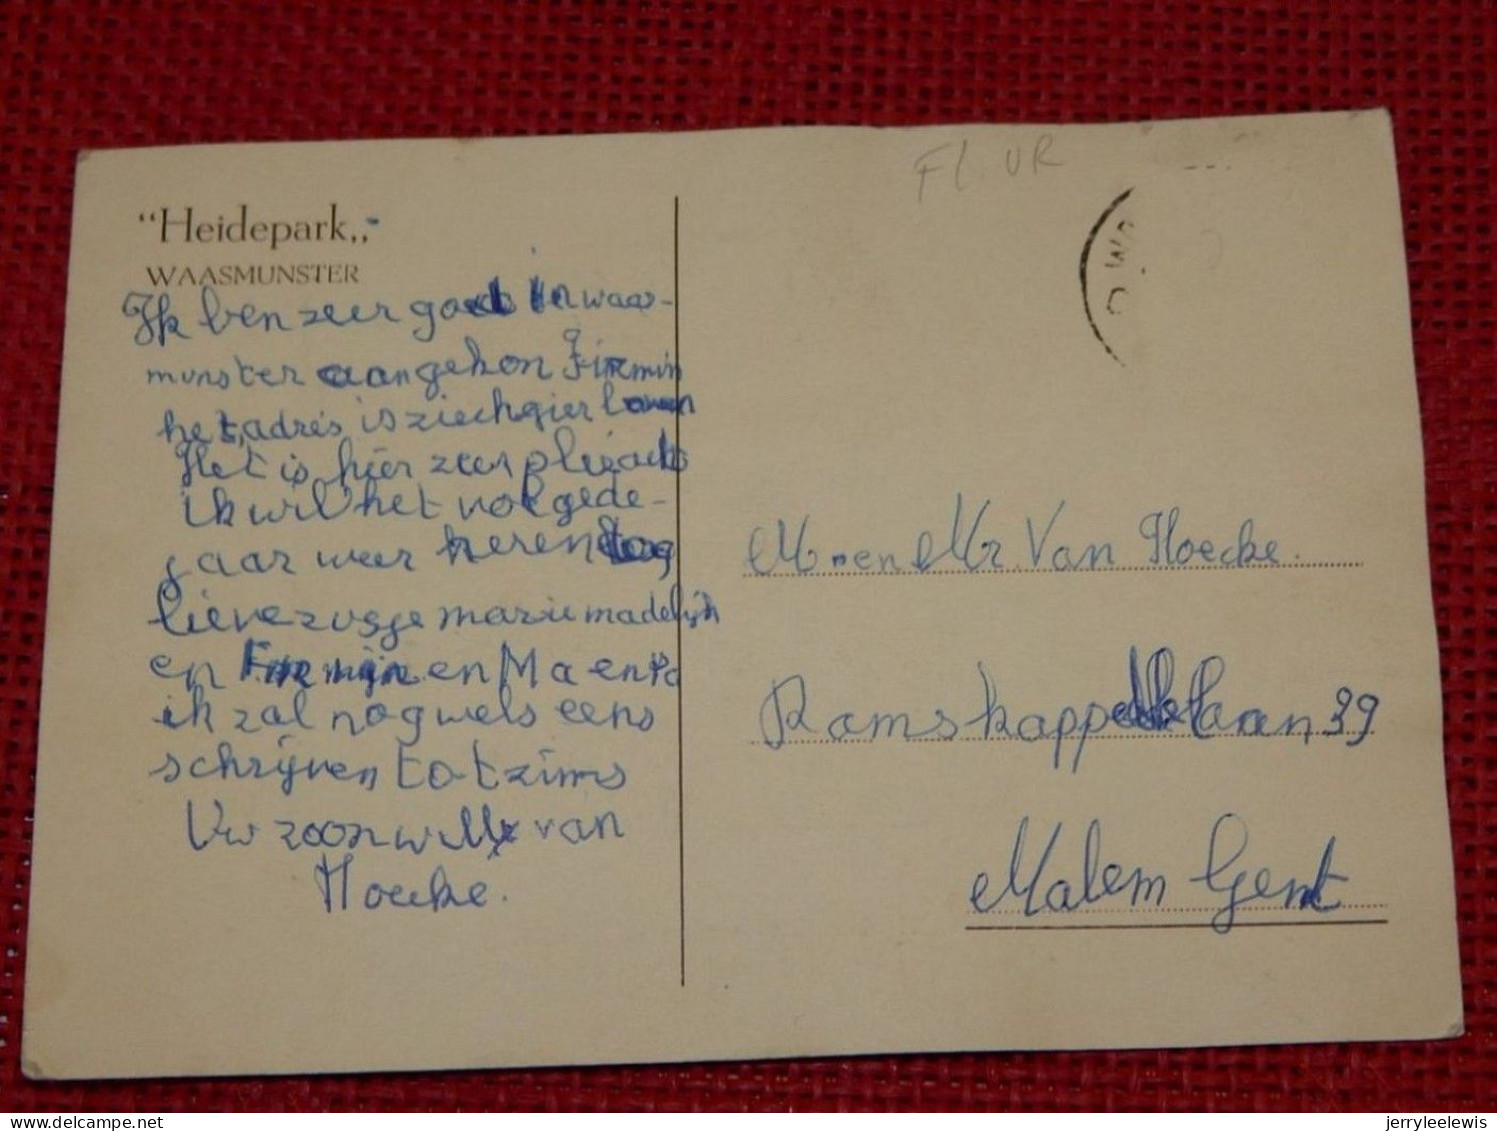 "Heidepark„
WAASMUNSTER
Ik ben zeer goed in waas-
munster aangekon Firmin
het adres is ziechgier boven
Het is hier zeer plezach
ik wil het volgede-
jaar weer
lieve zusje marie madelijn
en Firmijn en Ma en Pa
ik zal nog wels eens
schrijven tot zims
Uw zoon willy van
Hoecke.
FL. UR
M. en Mr. Van Hoecke.
Ramskappellelaan 39
Malem Gent
jerryleelewis